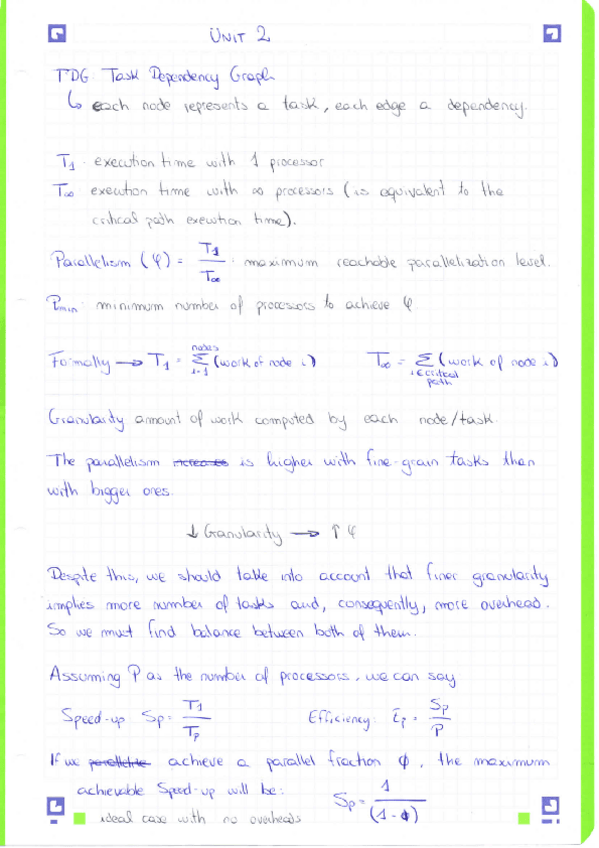 UNIT 2
TDG: Task Dependency Graph
↳ each node represents a task, each edge a dependency.
T1: execution time with 1 processor
T∞: execution time with ∞ processors (is equivalent to the
critical path execution time).
Parallelism (φ) = T1 / T∞ : maximum reachable parallelization level.
Pmin: minimum number of processors to achieve φ
Formally → T1 = Σ i=1 nodes (work of node i) T∞ = Σ i∈critical path (work of node i)
Granularity amount of work computed by each node/task.
The parallelism increases is higher with fine-grain tasks than
with bigger ones.
↓ Granularity → ↑ φ
Despite this, we should take into account that finer granularity
implies more number of tasks and, consequently, more overhead.
So we must find balance between both of them.
Assuming P as the number of processors, we can say
Speed-up: Sp = T1 / Tp Efficiency: Ep = Sp / P
If we achieve a parallel fraction φ, the maximum
achievable Speed-up will be: Sp = 1 / (1-φ)
ideal case with no overheads